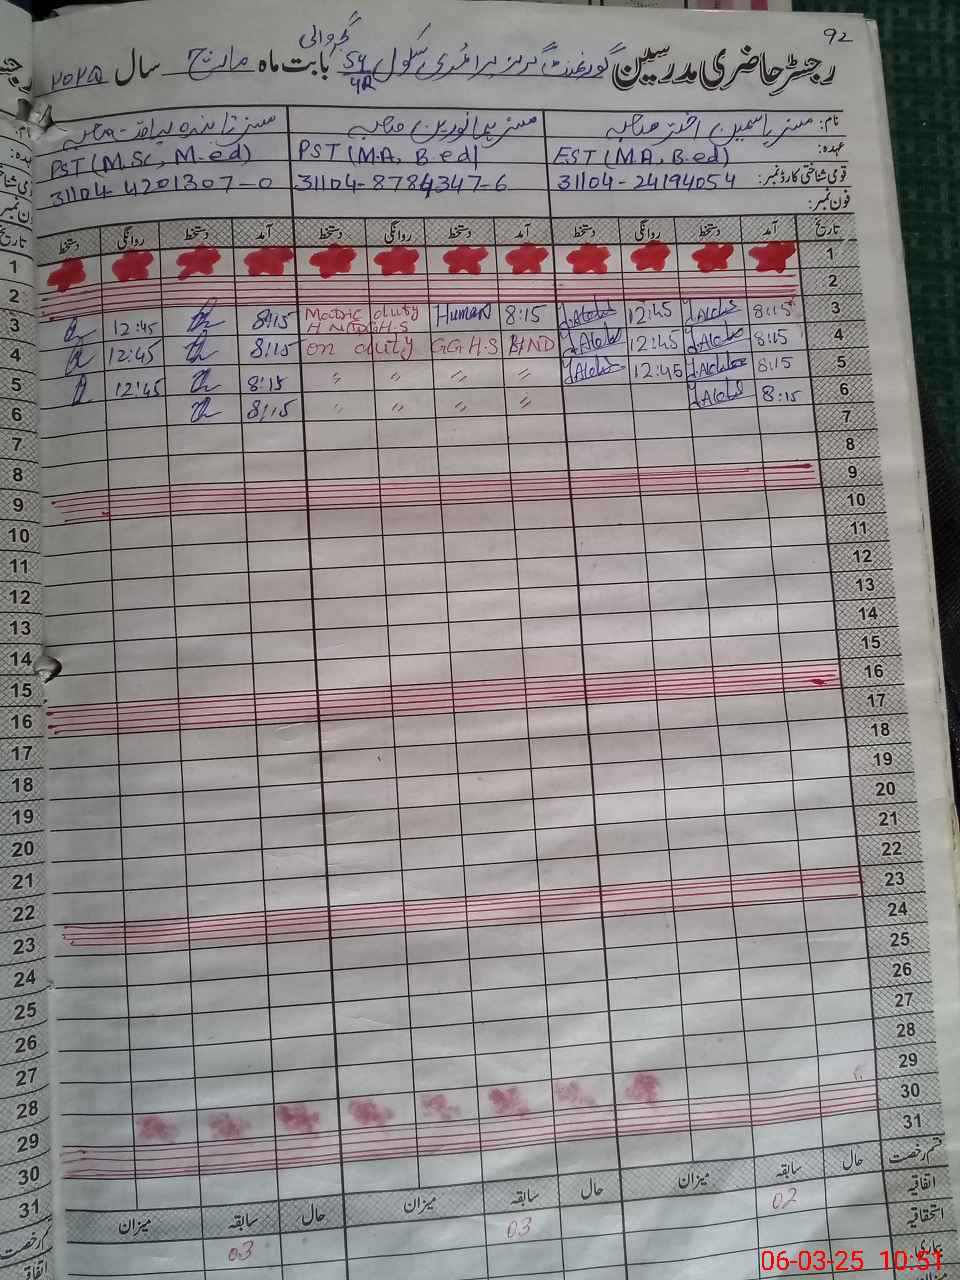 92
گجروالی
رجسٹر حاضری مدرسین گورنمنٹ گرلز پرائمری سکول 54/4R بابت ماہ مارچ سال ۲۰۲۵
نام: مسز یاسمین اختر صاحبہ مسز ہما نورین صاحبہ
عہدہ: EST (M.A, B.ed) PST (M.A, B.ed) PST (M.Sc, M.ed)
قومی شناختی کارڈ نمبر: 31104-24194054 31104-8784347-6 31104-4201307-0
فون نمبر:
تاریخ آمد دستخط روانگی دستخط آمد دستخط روانگی دستخط آمد دستخط روانگی دستخط
1 1
2 2
3 8:15 12:45 8:15 Human Matric duty 8:15 12:45 3
4 8:15 12:45 GGHS HND on duty 8:15 12:45 4
5 8:15 12:45 〃 〃 〃 〃 8:15 12:45 5
6 8:15 〃 〃 〃 〃 8:15 6
7 7
8 8
9 9
10 10
11 11
12 12
13 13
14 14
15 15
16 16
17 17
18 18
19 19
20 20
21 21
22 22
23 23
24 24
25 25
26 26
27 27
28 28
29 29
30 30
31 31
قسم رخصت حال سابقہ میزان حال سابقہ میزان حال سابقہ میزان
اتفاقیہ 02 03 03
استحقاقیہ
بیماری
06-03-25 10:51